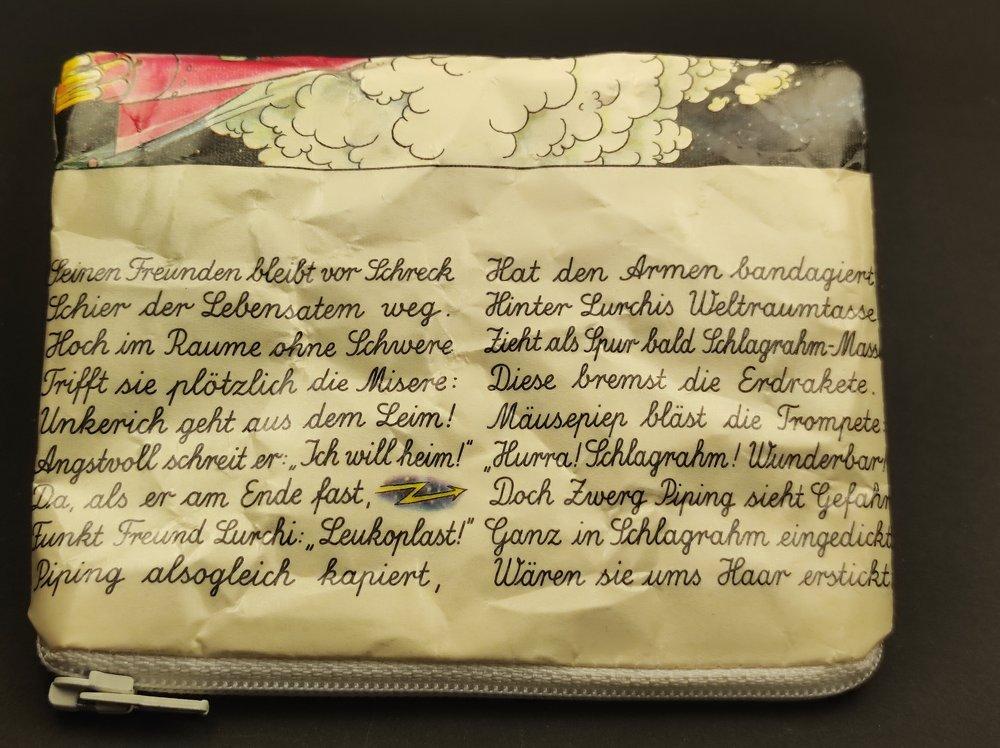 Seinen Freunden bleibt vor Schreck
Schier der Lebensatem weg.
Hoch im Raume ohne Schwere
Trifft sie plötzlich die Misere:
Unkerich geht aus dem Leim!
Angstvoll schreit er: „Ich will heim!“
Da, als er am Ende fast,
Funkt Freund Lurchi: „Leukoplast!“
Piping alsogleich kapiert,
Hat den Armen bandagiert
Hinter Lurchis Weltraumtasse
Zieht als Spur bald Schlagrahm-Mass
Diese bremst die Erdrakete.
Mäusepiep bläst die Trompete:
„Hurra! Schlagrahm! Wunderbar!
Doch Zwerg Piping sieht Gefahr
Ganz in Schlagrahm eingedickt
Wären sie ums Haar erstickt